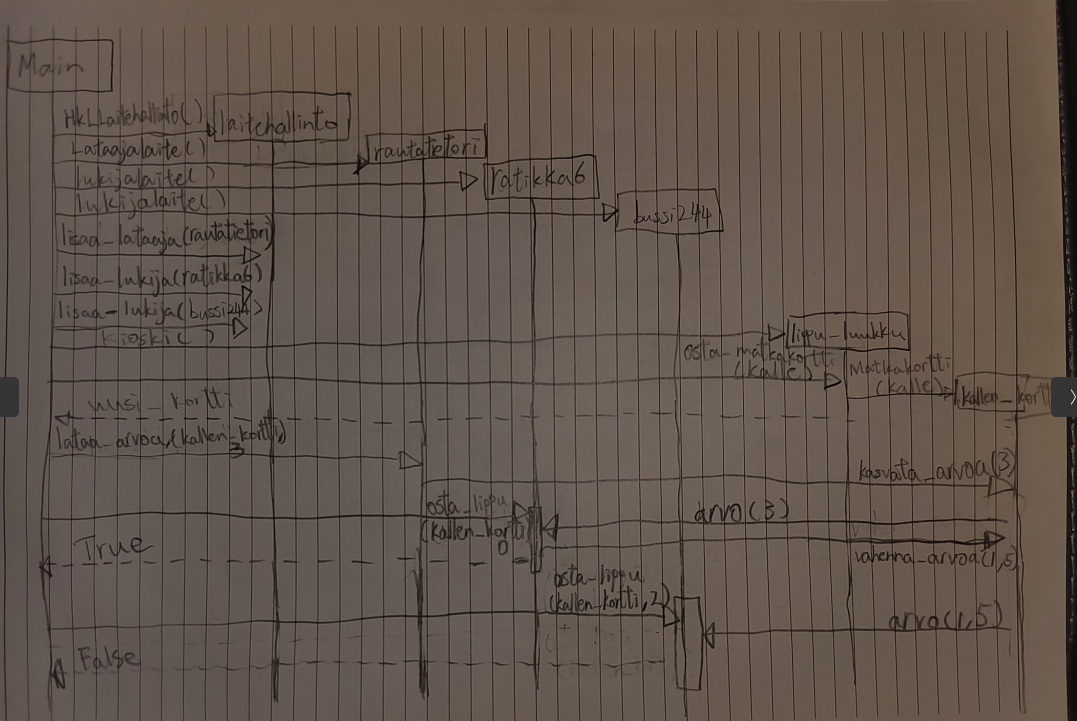 Main
HKLLaitehallinto( )
laitehallinto
Lataajalaite( )
rautatietori
lukijalaite( )
ratikka6
lukijalaite( )
bussi244
lisaa_lataaja(rautatietori)
lisaa_lukija(ratikka6)
lisaa_lukija(bussi244)
Kioski( )
lippu_luukku
osta_matkakortti
(kalle)
Matkakortti
(kalle)
kallen_kortti
uusi_kortti
lataa_arvoa(kallen_kortti,
3)
kasvata_arvoa(3)
osta_lippu
(kallen_kortti,
0)
arvo(3)
True
vahenna_arvoa(1,5)
osta_lippu
(kallen_kortti,2)
arvo(1,5)
False